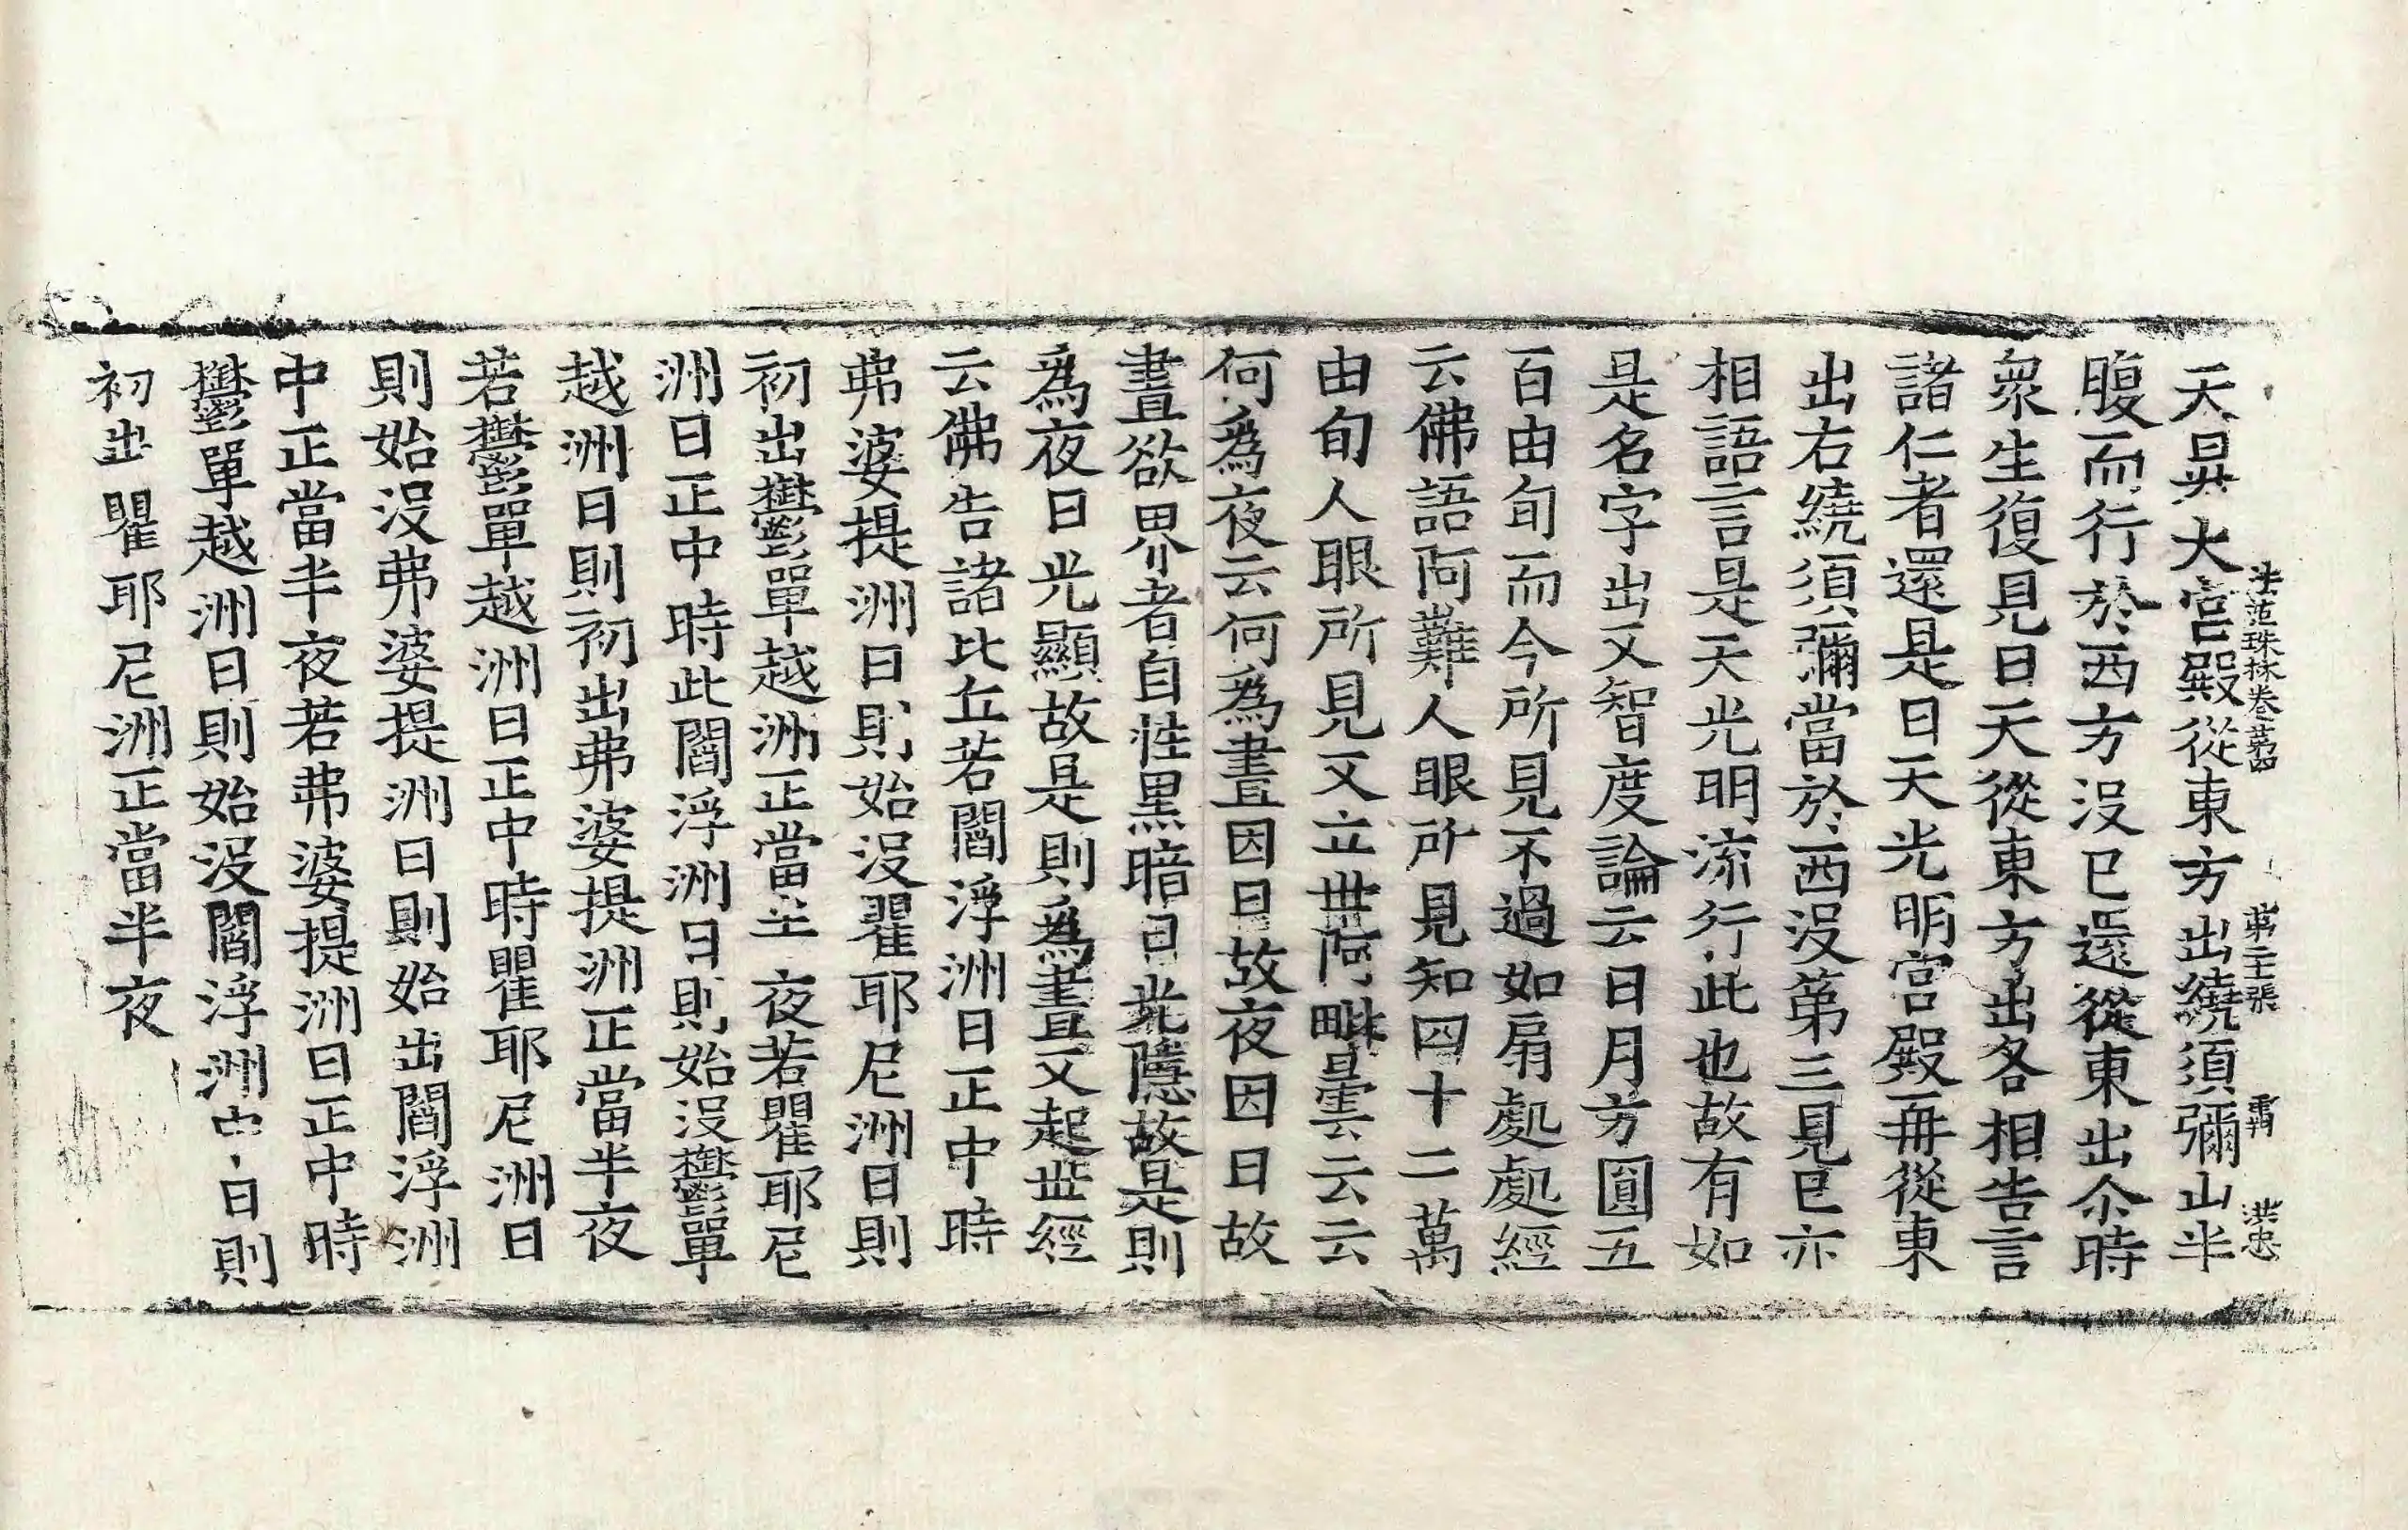 天是大宮殿從東方出繞須彌山半
法苑珠林卷第四 第二十張 霄 洪忠
腹而行於西方没已還從東出尒時
衆生復見日天從東方出各相告言
諸仁者還是日天光明宮殿再從東
出右繞須彌當於西没第三見已亦
相語言是天光明流行此也故有如
是名字出又智度論云日月方圓五
百由旬而今所見不過如扇處處經
云佛語阿難人眼所見知四十二萬
由旬人眼所見又立世阿毗曇云云
何爲夜云何爲晝因日故夜因日故
晝欲界者自性黒暗日光隱故是則
爲夜日光顯故是則爲晝又起世經
云佛告諸比丘若閻浮洲日正中時
弗婆提洲日則始没瞿耶尼洲日則
初出鬱單越洲正當半夜若瞿耶尼
洲日正中時此閻浮洲日則始没鬱單
越洲日則初出弗婆提洲正當半夜
若鬱單越洲日正中時瞿耶尼洲日
則始没弗婆提洲日則始出閻浮洲
中正當半夜若弗婆提洲日正中時
鬱單越洲日則始没閻浮洲中日則
初出瞿耶尼洲正當半夜